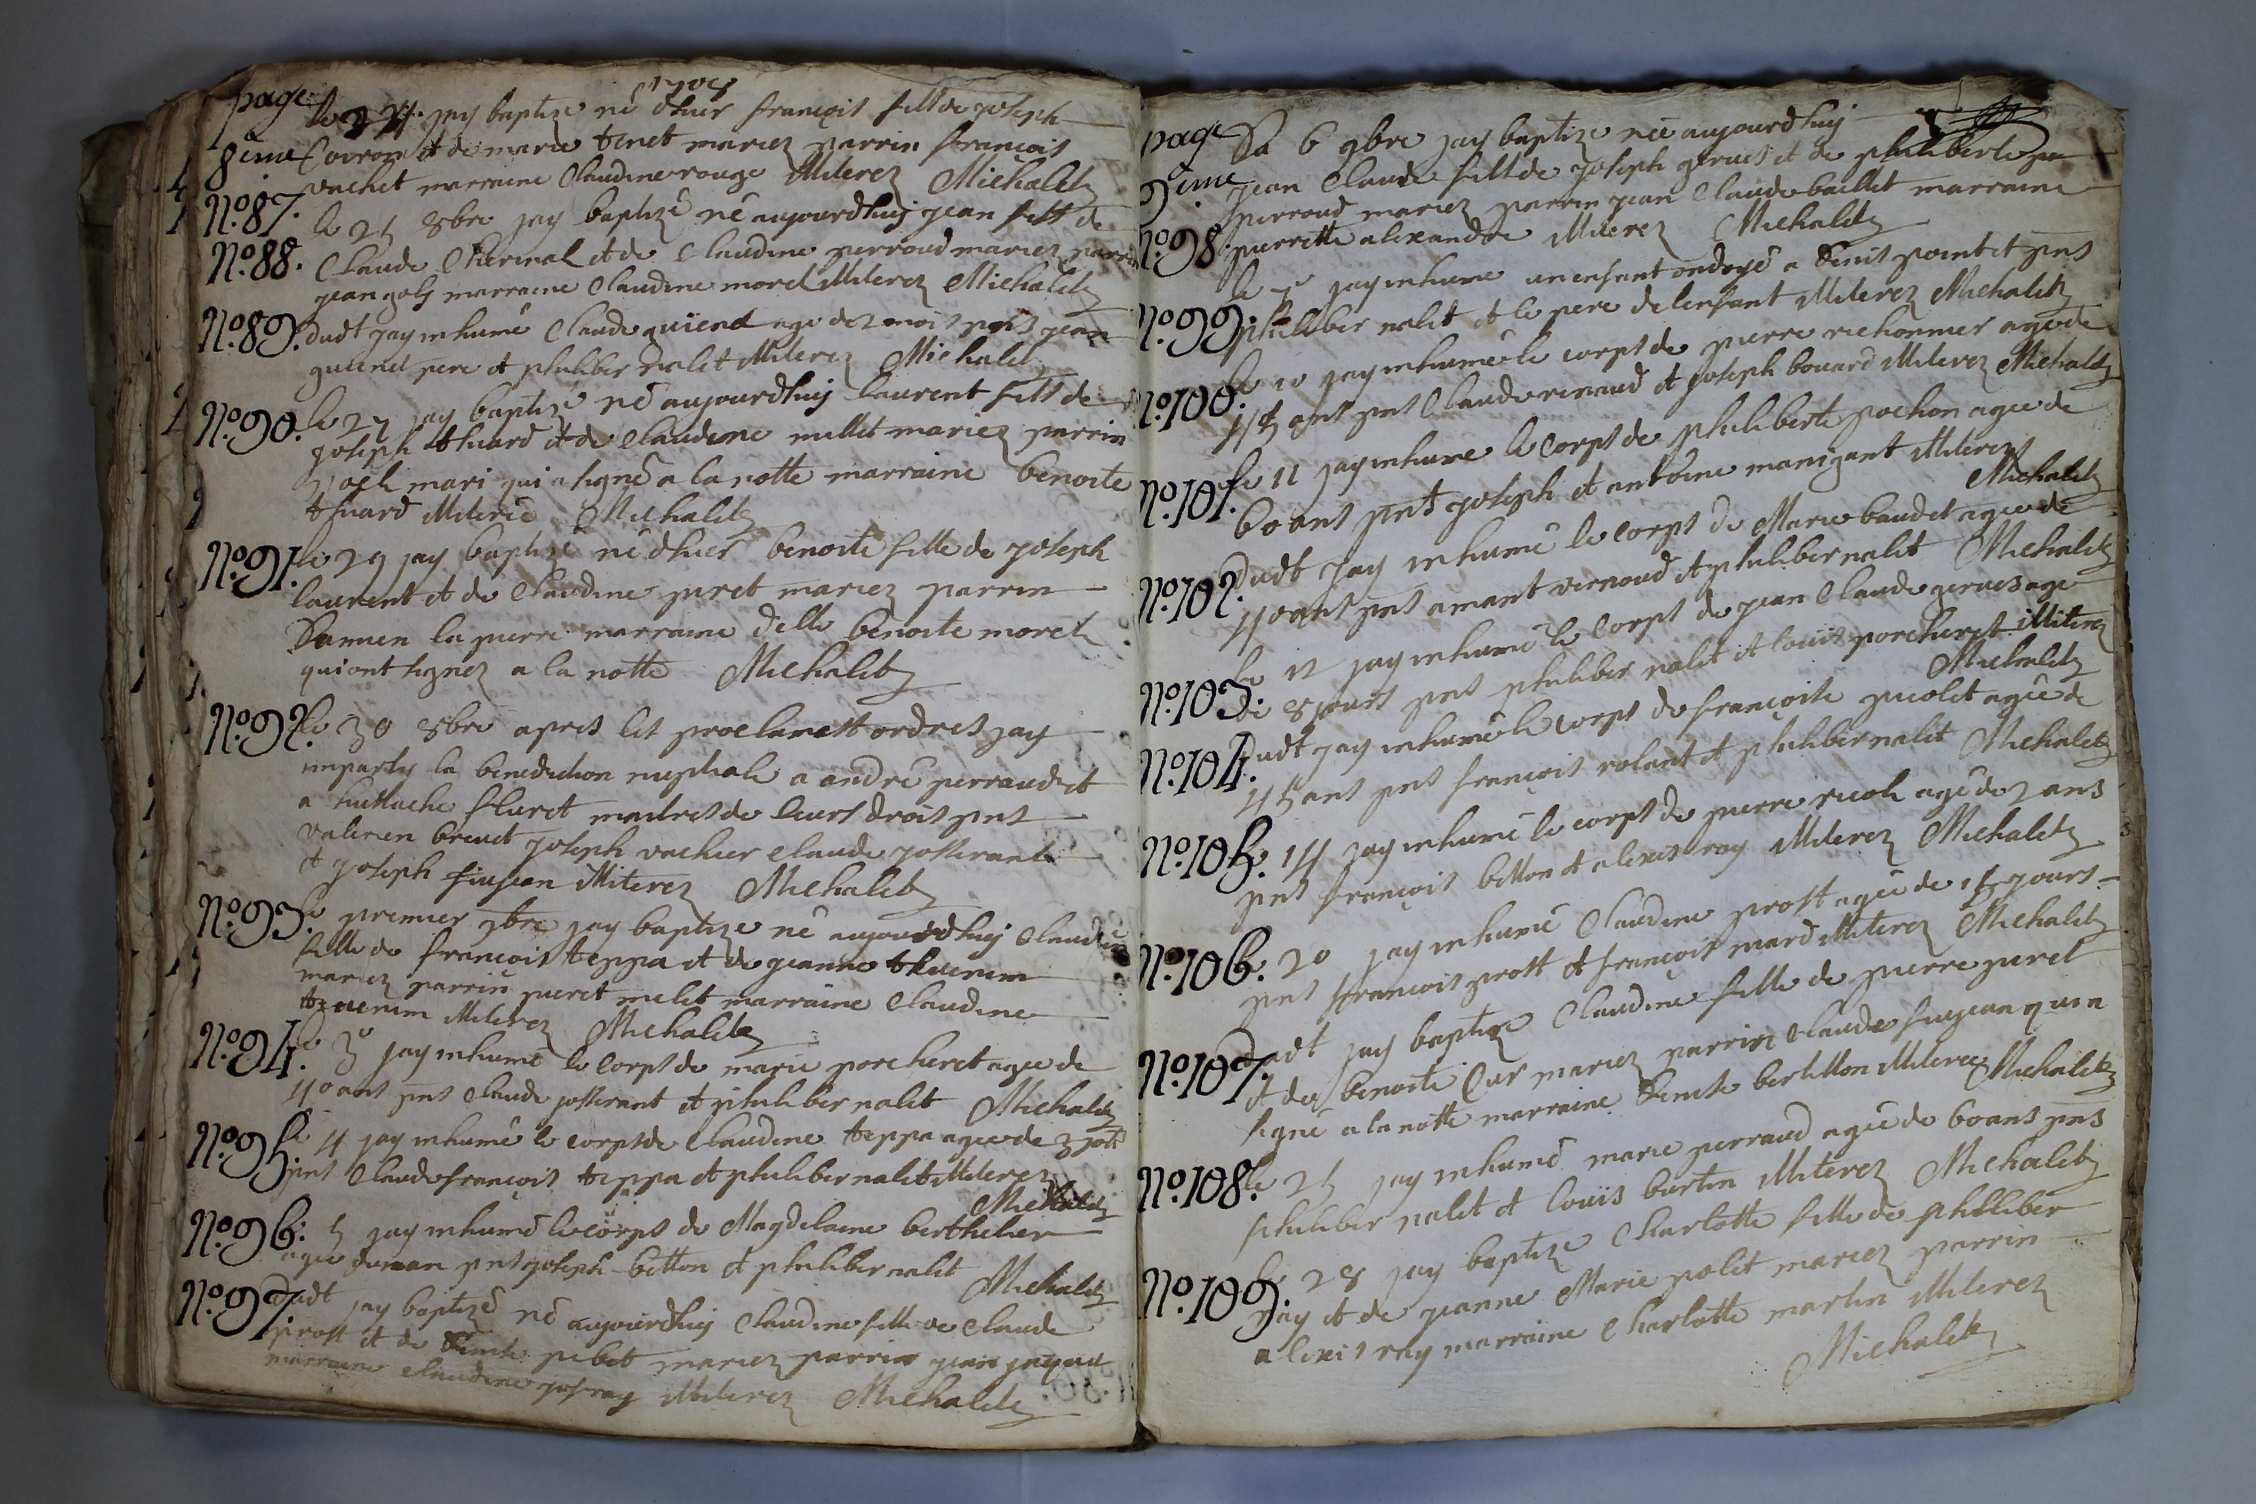 page
8ème
1705
le 24 jay baptize né dhier françois fills de joseph
Convron et de marie tenet mariez parrin françois
vachet marraine Claudine rouge illiterez Michalet
No. 87.
le 25 8bre jay baptizé né aujourdhuij jean fills de
No. 88.
Claude Chermal et de Claudine perroud mariez parrin
jean joly marraine Claudine morel illiterez Michalet
No. 89.
dudt jay inhumé Claude quienet age de 2 mois pnts jean
quienet pere et philiber nalet illiterez Michalet
No. 90.
le 27 jay baptizé né aujourdhuij laurent fills de
joseph thuard et de Claudine millet mariez parrin
joseh mari qui a signé a la notte marraine benoite
thuard illiteré Michalet
No. 91.
le 29 jay baptizé né dhier benoite fille de joseph
laurent et de Claudine puret mariez parrin
Damien la pierre marraine delle benoite morel
qui ont signez a la notte Michalet
No. 92.
le 30 8bre apres les proclamatt ordres jay
imparty la benediction nuptiale a andré perraud et
a huttache fluret maitres de leurs droits pnts
valerien brevet joseph vachier claude josserant
et joseph fiujean illiterez Michalet
No. 93.
le premier 9bre jay baptize né aujourdhuij Claudine
fille de françois teppa et de jeanne thevenin
mariez parrin pieret melet marraine Claudine
thevenim illiterez Michalet
No. 94.
le 3 jay inhumé le corps de marie porcheret agee de
40 ans pnts claude josserant et philiber nalet Michalet
No. 95.
le 4 jay inhumé le corps de Claudine teppa agee de 3 jours
pnts Claude françois teppa et philiber nalet illiterez
Michalet
No. 96.
5 jay inhumé le corps de Magdelaine berthelier
agee dun an pnts joseph bitton et philiber nalet
Michalet
No. 97.
dudt jay baptizé né aujourdhuij Claudine fille de Claude
prost et de Denise pebet mariez parrin jean jayau
marraine claudine jofray illiterez Michalet
page
9ème
Du 6 9bre jay baptize néé aujourdhuij
jean Claude fills de joseph gerues et de philiberte pu
perroud mariez parrin jean Claude baillet marraine
No. 98.
pierrette alexandre illiterez Michalet
le 7 jay inhumé un enfant ondoyé a Denis point et pnts
No. 99.
philiber nalet et le pere de lenfant illiterez Michalet
No. 100.
le 10 jay inhumé le corps de pierre richonnier age de
45 ans pnts Claude renaud et joseph bouard illiterez Michalet
No. 101.
le 11 jay inhume le corps de philiberte pochon agee de
60 ans pnts joseph et antoine manigant illiterez
Michalet
No. 102.
dudt jay inhumé le corps de Marie baudet agee de
40 ans pnts amant vernoud et philiber nalet Michalet
No. 103.
le 12 jay inhumé le corps de jean Claude gerues age
de 8 jours pnts philiber nalet et louis porcheret illiterez
Michalet
No. 104.
dudt jay inhumé le corps de françoise picolet agée de
45 ans pnts françois rolant et philiber nalet Michalet
No. 105.
14 jay inhumé le corps de pierre ricol agé de 2 ans
pnts françois bitton et alexis ray illiterez Michalet
No. 106.
20 jay inhumé Claudine prost agée de 15 jours
pnts françois prost et françois mard illiterez Michalet
No. 107.
dudt jay baptize Claudine fille de pierre puret
et de benoite Cur mariez parrin claude fiujean qui a
signé a la notte marraine Denise bertillon illiteree Michalet
No. 108.
le 25 jay inhumé marie perraud agée de 60 ans pnts
philiber nalet et louis burtin illiterez Michalet
No. 109.
le 28 jay baptize Charlotte fille de philliber
ray et de jeanne Marie polet mariez parrin
alexis ray marraine charlotte martin illiterez
Michalet